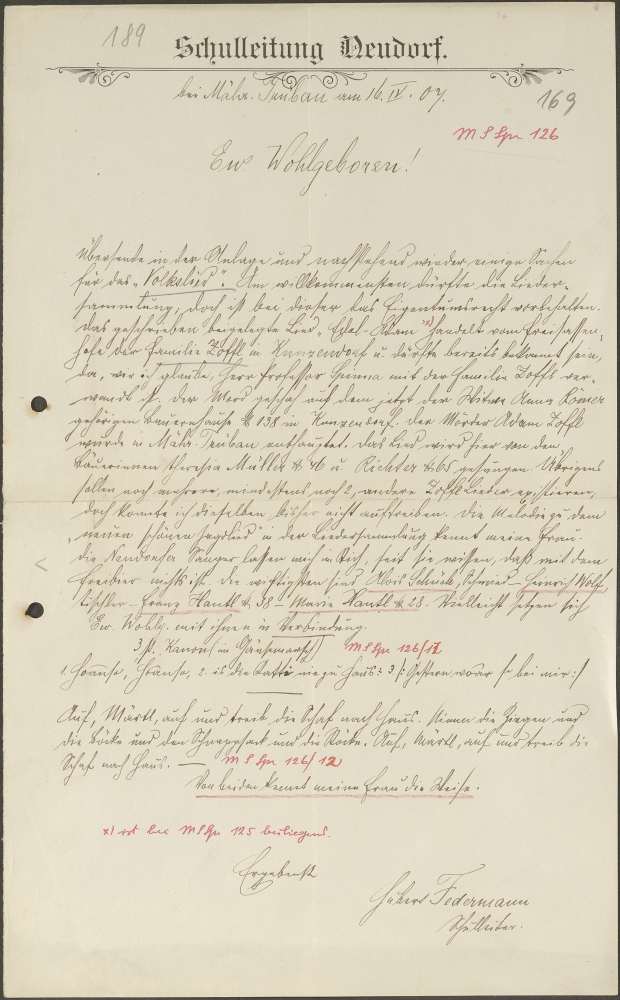 189
Schulleitung Neudorf.
bei Mähr. Trübau am 16. IV. 07.
169
MS Spr 126
Ew. Wohlgeboren!
Übersende in der Anlage und nachstehend wieder einige Sachen
für das „Volkslied". Am willkommensten dürfte die Lieder-
sammlung, doch ist bei dieser das Eigentumsrecht vorbehalten.
Das geschrieben beigelegte Lied „Edel-Adam" x) handelt vom Freisassen-
hofe der Familie Zoffl in Kunzendorf u. dürfte bereits bekannt sein,
da, wie ich glaube, Herr Professor mit der Familie Zoffl ver-
wandt ist. Der Mord geschah auf dem jetzt der Witwe Anna
gehörigen Bauernhause № 138 in Kunzendorf. Der Mörder Adam Zoffl
wurde in Mähr. Trübau enthauptet. Das Lied wird hier von den
Bäuerinnen Theresia Müller № 46 u. Richter № 65 gesungen. Übrigens
sollen noch mehrere, mindestens noch 2, andere Zoffl Lieder existieren,
doch konnte ich dieselben bisher nicht auftreiben. Die Melodie zu dem
„neuen schönen Jagdlied" in der Liedersammlung kennt meine Frau.
Die Neudorfer Sänger lassen mich in Stich, seit sie wissen, daß mit dem
nichts ist. Die wichtigsten sind Alois Schück, Heinrich Wolf,
Tischler – Franz Hantl № 38 – Marie Hantl № 28. Vielleicht setzen sich
Ew. Wohlg. mit ihnen in Verbindung.
3 st. Kanon (im Gänsemarsch) MS Spr 126/11
1. Hannse, Hannse, 2. is die Katti nie zu Haus? 3. /: Gestern woar s' bei mir :/
Auf, Märtl, auf und treib die Schaf nach Haus. Nimm die Ziegen und
die Böcke und den Schnappsack und die Röcke. Auf, Märtl, auf und treib die
Schaf nach Haus. — MS Spr 126/12
Von beiden kennt meine Frau die Weise.
x) ist bei MS Spr 125 beiliegend.
Ergebenst
Hubert Federmann
Schulleiter.